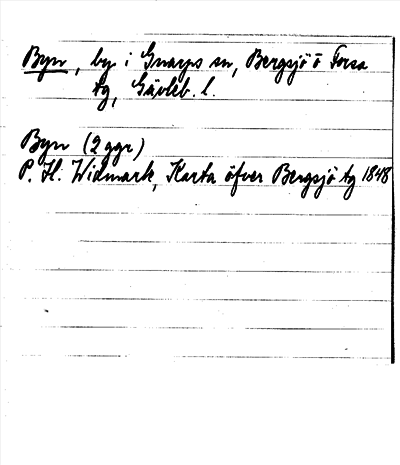 Byn, by i Gnarps sn, Bergsjö o Forsa
tg, Gävleb. l.
Byn (2 ggr)
P. H. Widmark, Karta öfver Bergsjö tg 1848